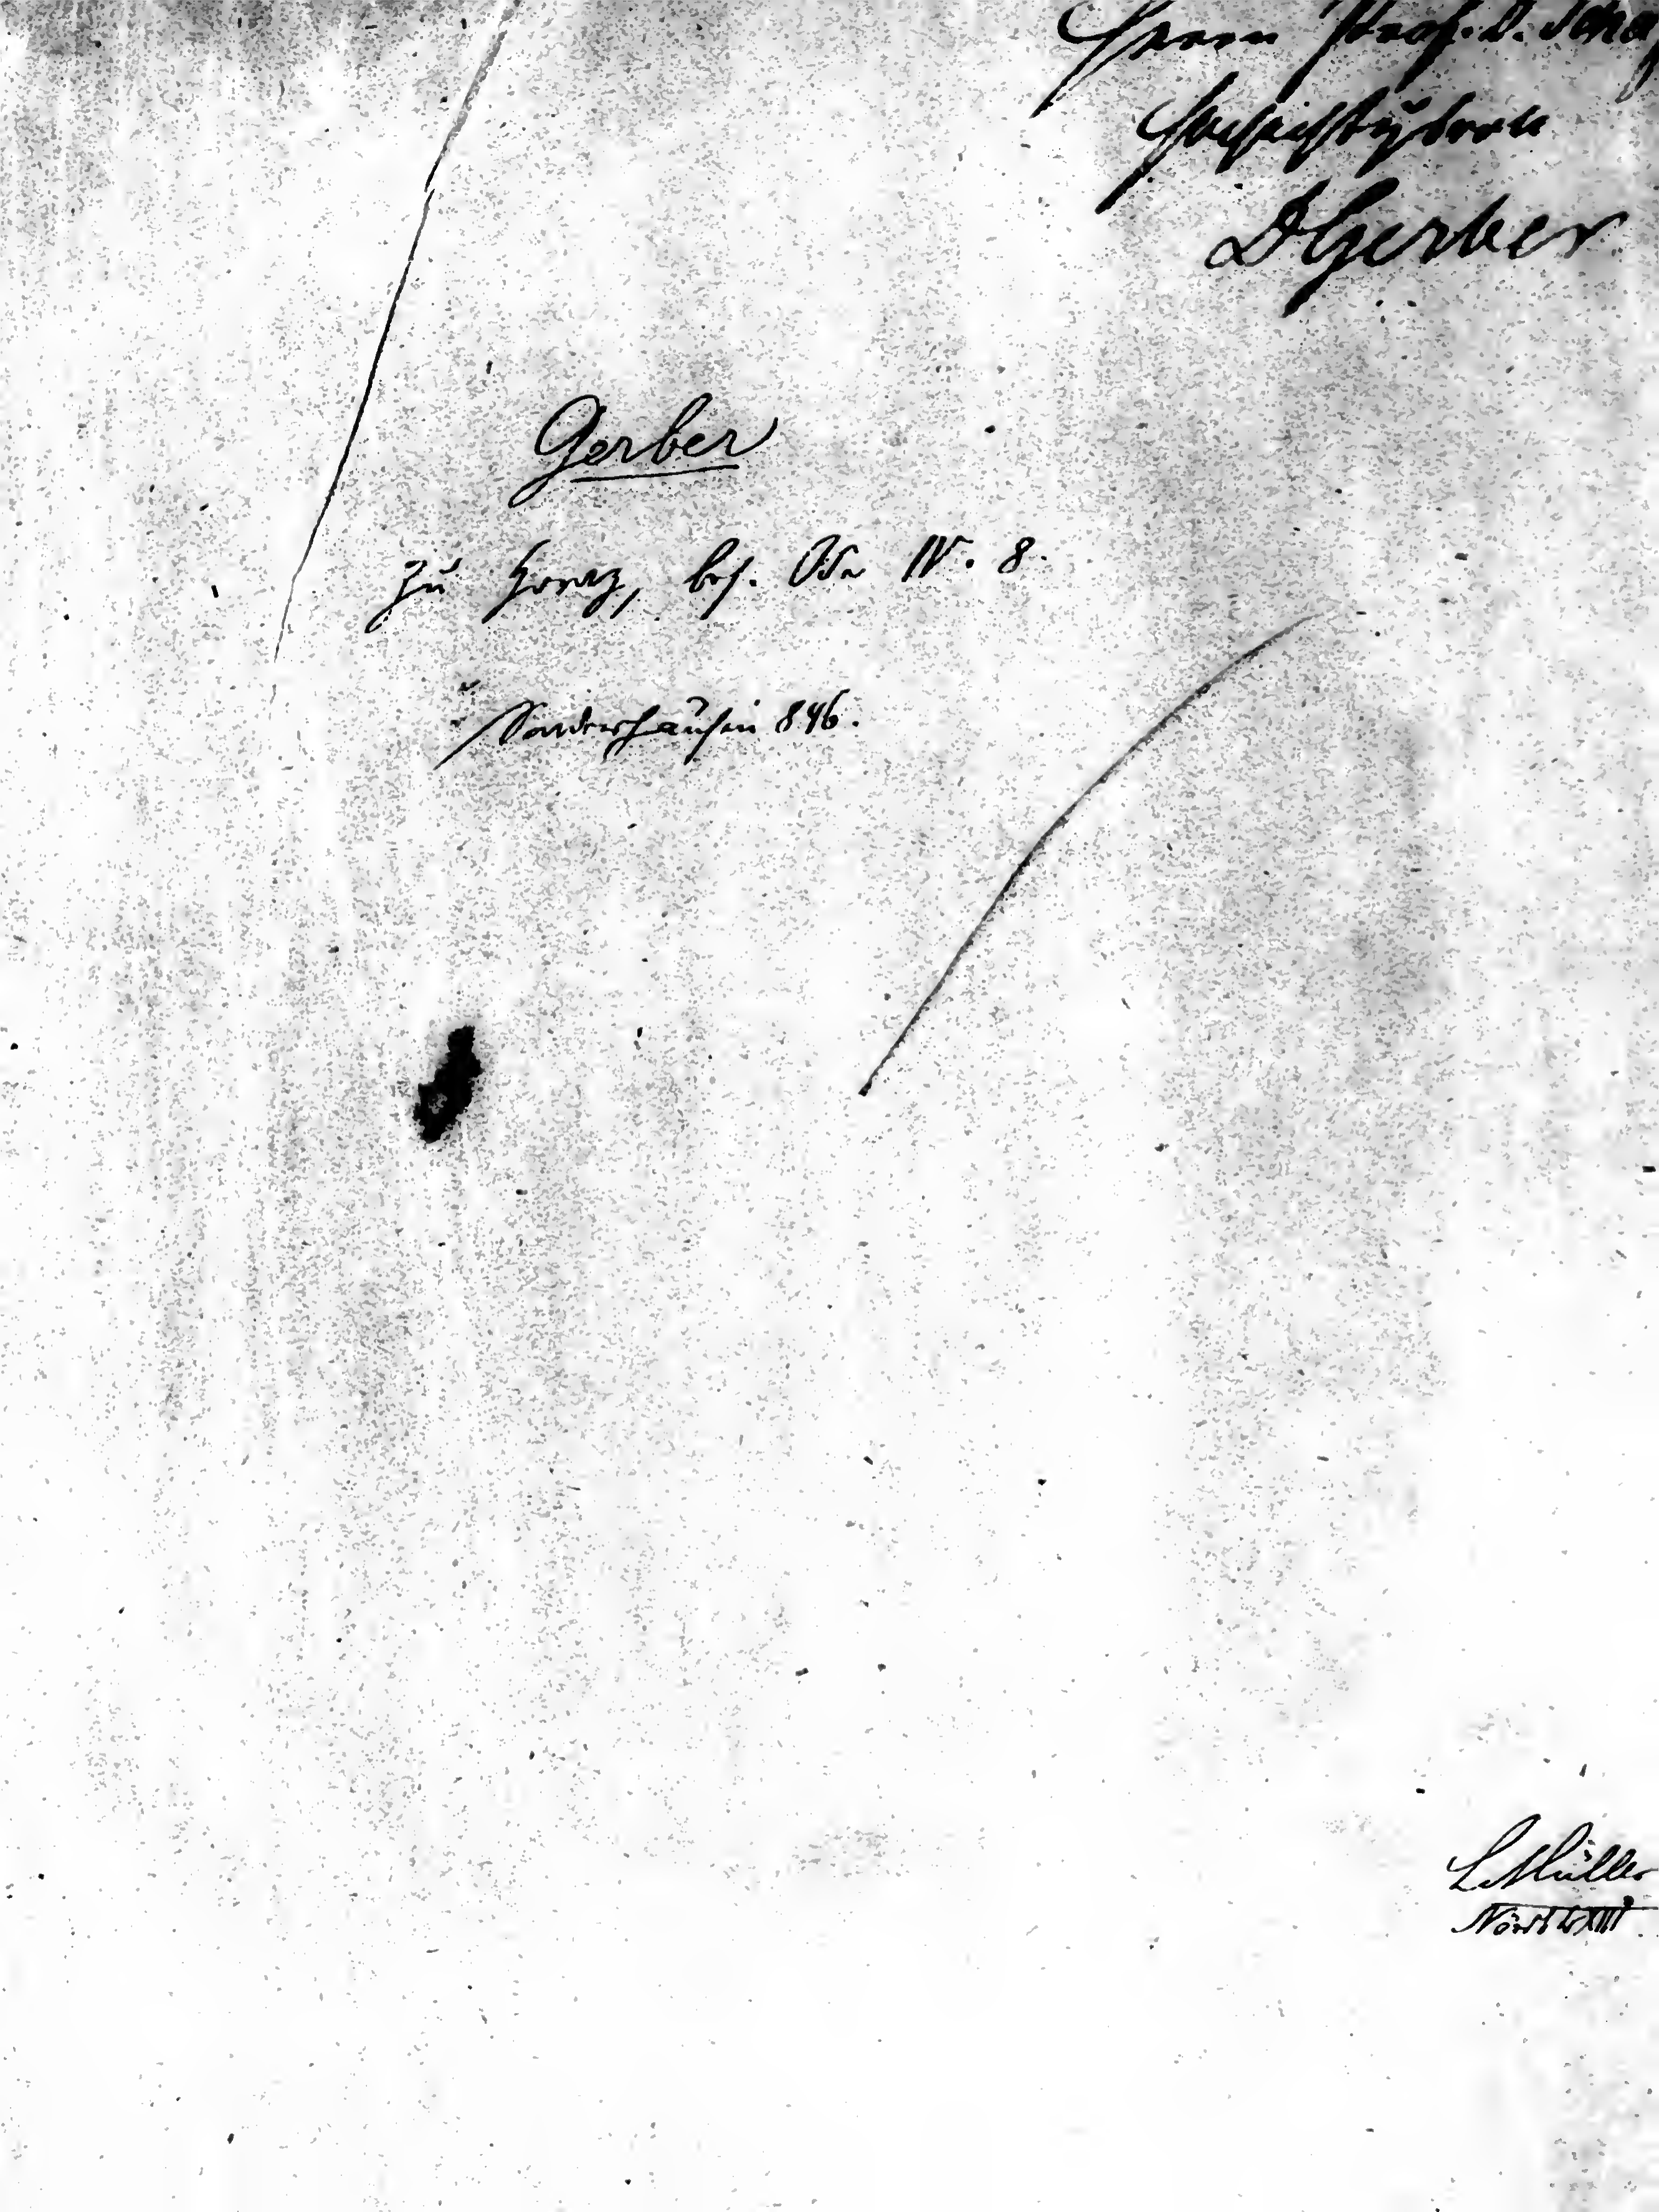 Herrn Prof. D. Scha
hochachtungsvoll
D Gerber
Gerber
zu Horaz, bes. Ode IV. 8.
Sondershausen 846.
L Müller